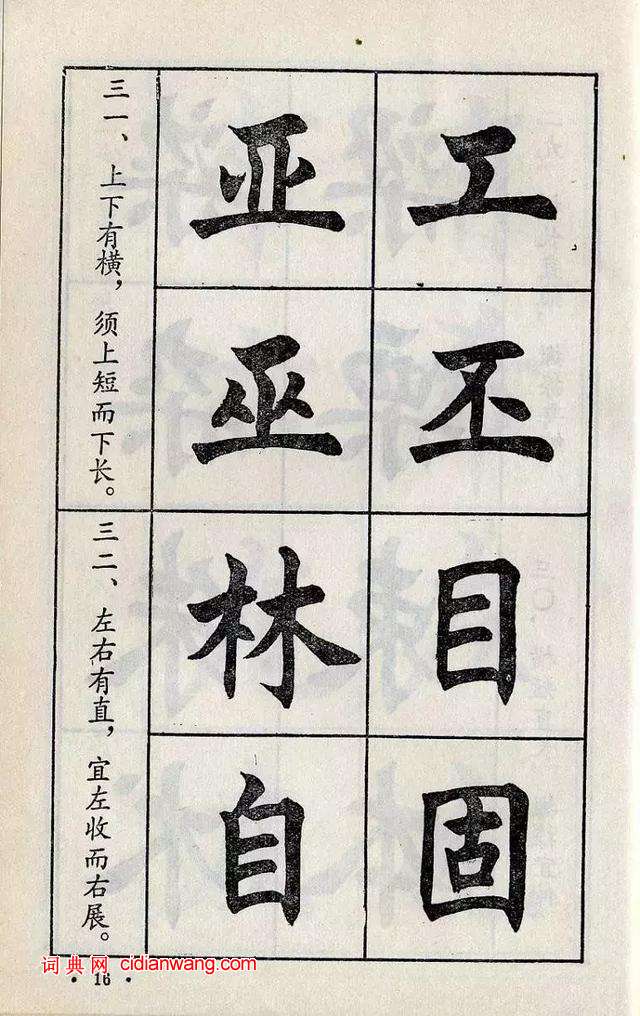 工
丕
目
固
亚
巫
林
自
三一、上下有横，须上短而下长。
三二、左右有直，宜左收而右展。
词典网 cidianwang.com
• 16 •